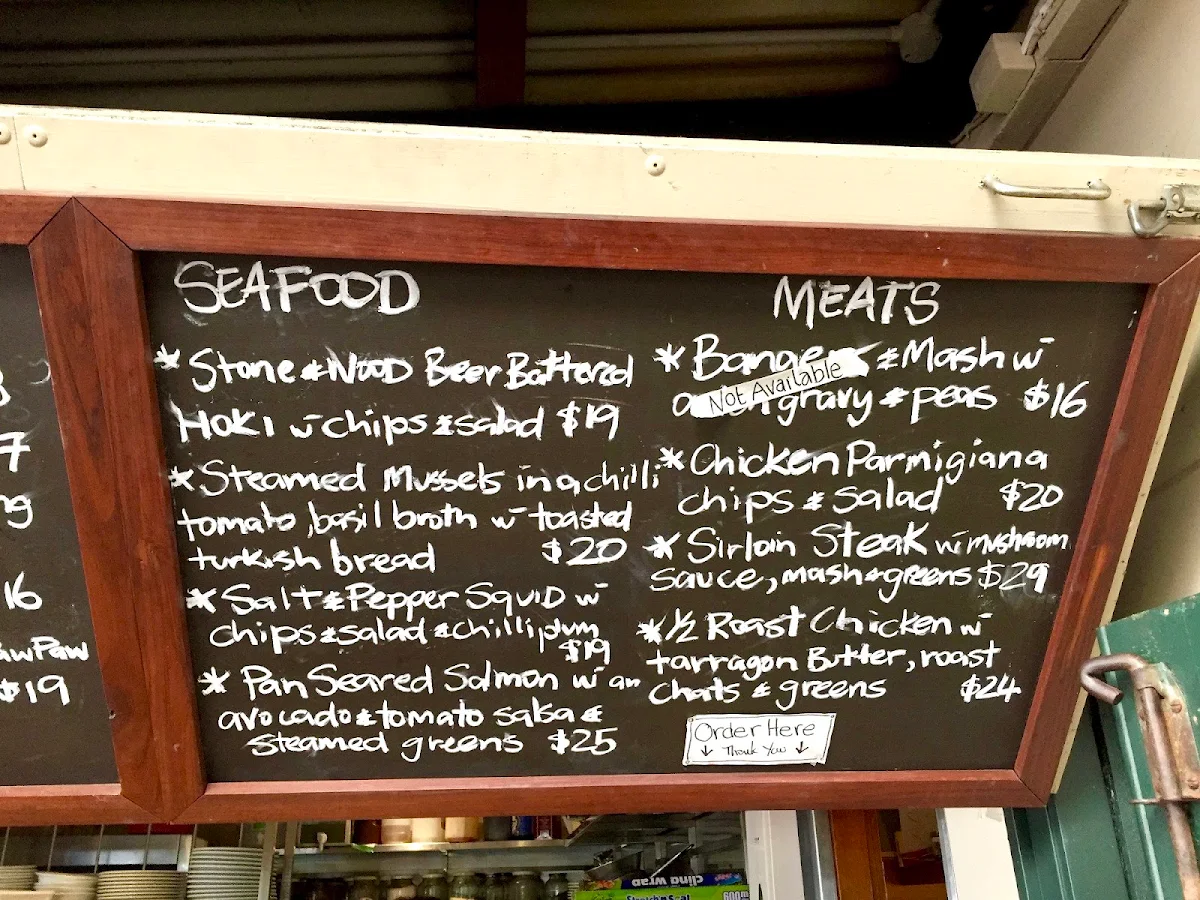 7
ng
16
awPaw
$19
SEAFOOD
* Stone & WOOD Beer Battered
HOKI w- chips & salad $19
* Steamed Mussels in a chilli
tomato, basil broth w- toasted
turkish bread $20
* Salt & Pepper Squid w-
chips & salad & chilli plum
$19
* Pan Seared Salmon w- an
avocado & tomato salsa &
steamed greens $25
MEATS
* Bangers & Mash w-
Not Available
gravy & peas $16
* Chicken Parmigiana
chips & salad $20
* Sirloin Steak w- mushroom
sauce, mash & greens $29
* 1/2 Roast Chicken w-
tarragon Butter, roast
chats & greens $24
Order Here
↓ Thank You ↓
cling wrap
Stretch'n Seal
600m